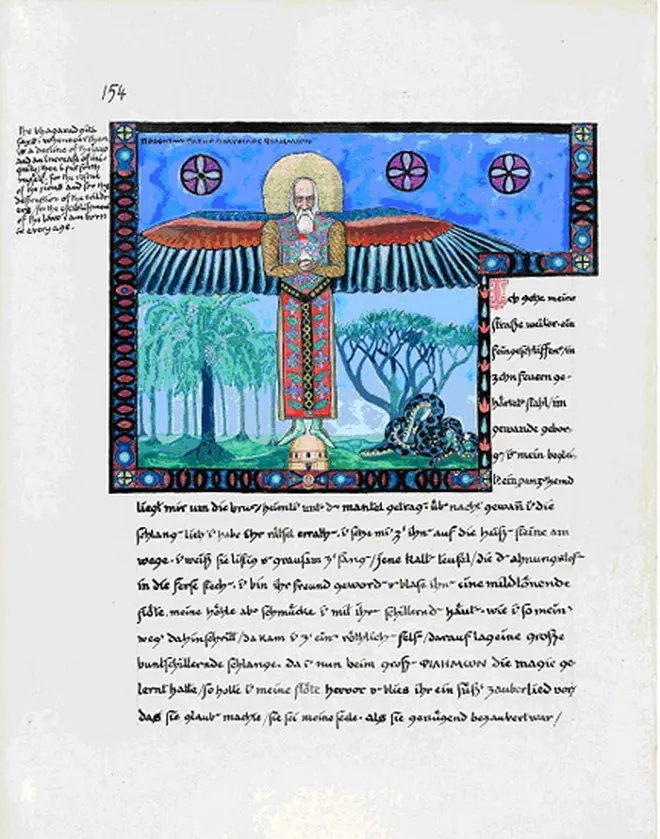 154
The bhagavad gita
says: whenever there
is a decline of the law
and an increase of ini
quity, then I put forth
myself. for the rescue
of the pious and for the
destruction of the evildo
ers, for the establishment
of the law I am born
in every age.
ΦΙΛΗΜΩΝ
Ich gehe meine
straße weiter. ein
feingeschliffen, in
zehn feuern ge-
härtet stahl / im
gewande gebor-
g, ist mein beglei-
t. ein panzerhemd
liegt mir um die brust / heimli unt d mantel getrag. üb nacht gewan i die
schlang lieb i habe ihr rätsel errath. i setze mi z ihn auf die heiß steine am
wege. i weiß sie listig u grausam z fang / jene kalt teufel / die d ahnungslos
in die ferse stech. i bin ihr freund geword u blase ihn eine mildtönende
flöte. meine höhle ab schmücke i mit ihr schillernd häut. wie i so mein
weg dahinschritt / da kam i z ein röthlich fels / darauf lag eine große
buntschillernde schlange. da i nun beim groß ΦΙΛΗΜΩΝ die magie ge-
lernt hatte / so holte i meine flöte hervor u blies ihr ein süß zauberlied vor /
das sie glaub machte / sie sei meine seele. als sie genügend bezaubert war /